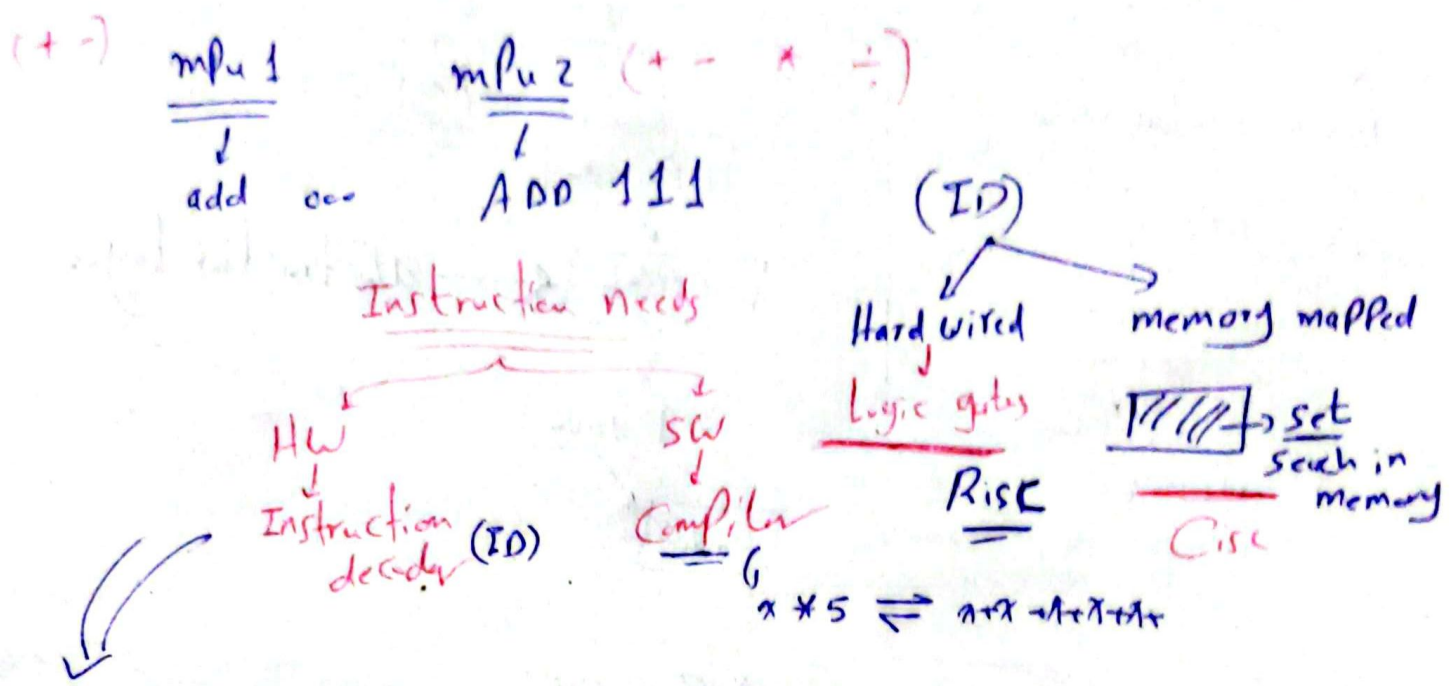 (+ -) mPu 1 mPu 2 (+ - * ÷)
add 000 ADD 111
(ID)
Instruction needs
Hard wired memory mapped
HW SW Logic gates set
Risc seach in
memory
Instruction (ID) Compiler Cisc
decoder
x * 5 ⇌ x+x+x+x+x+